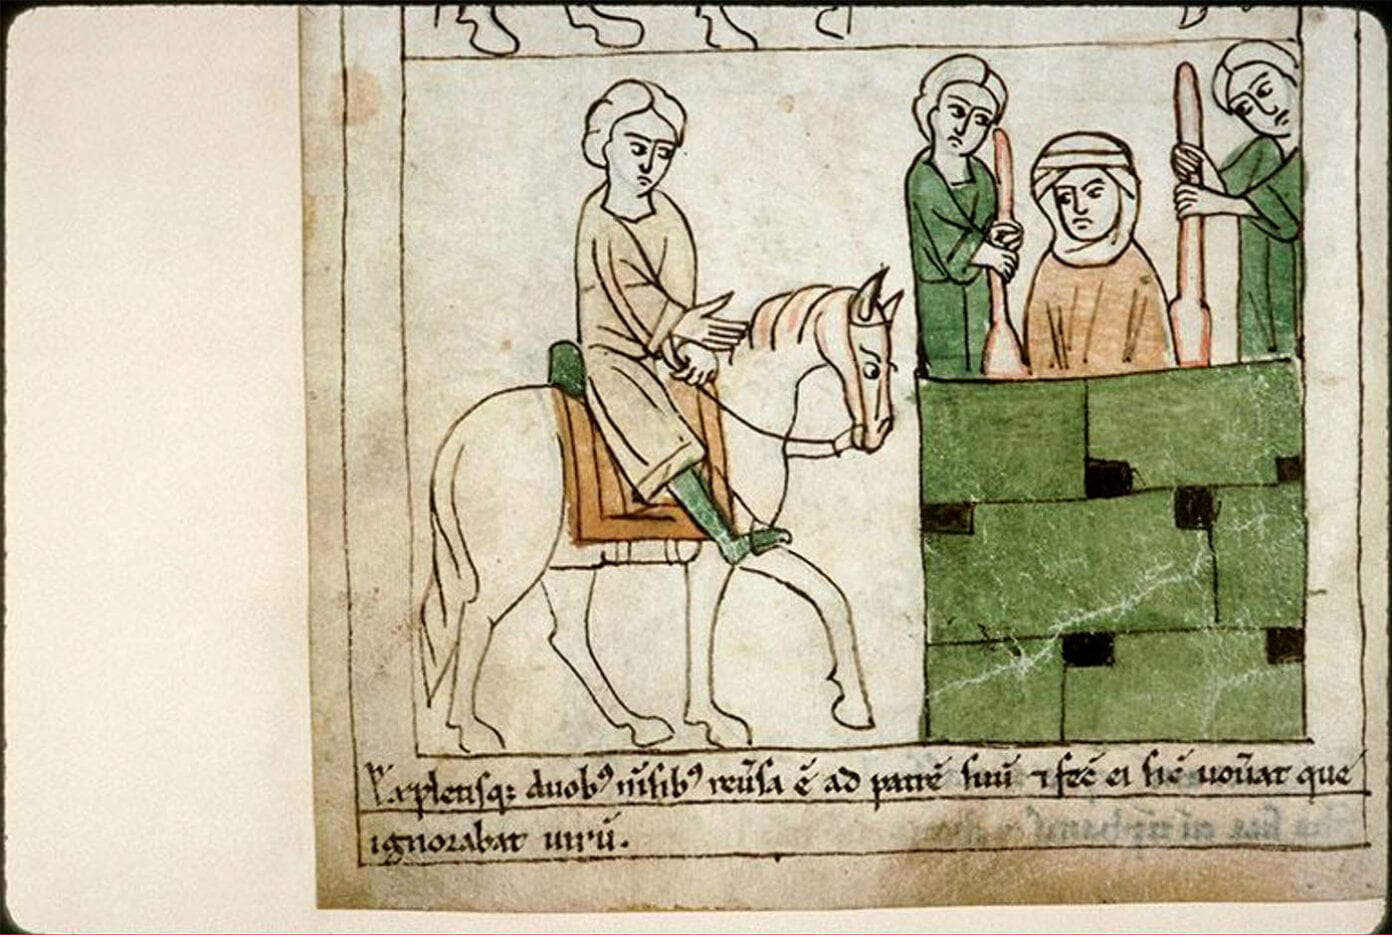 Expletisq; duob⁹ m̄sib⁹ reũsa ē ad patrē suū ⁊ fec̄ ei sic̄ uoũat que
ignorabat uirū.